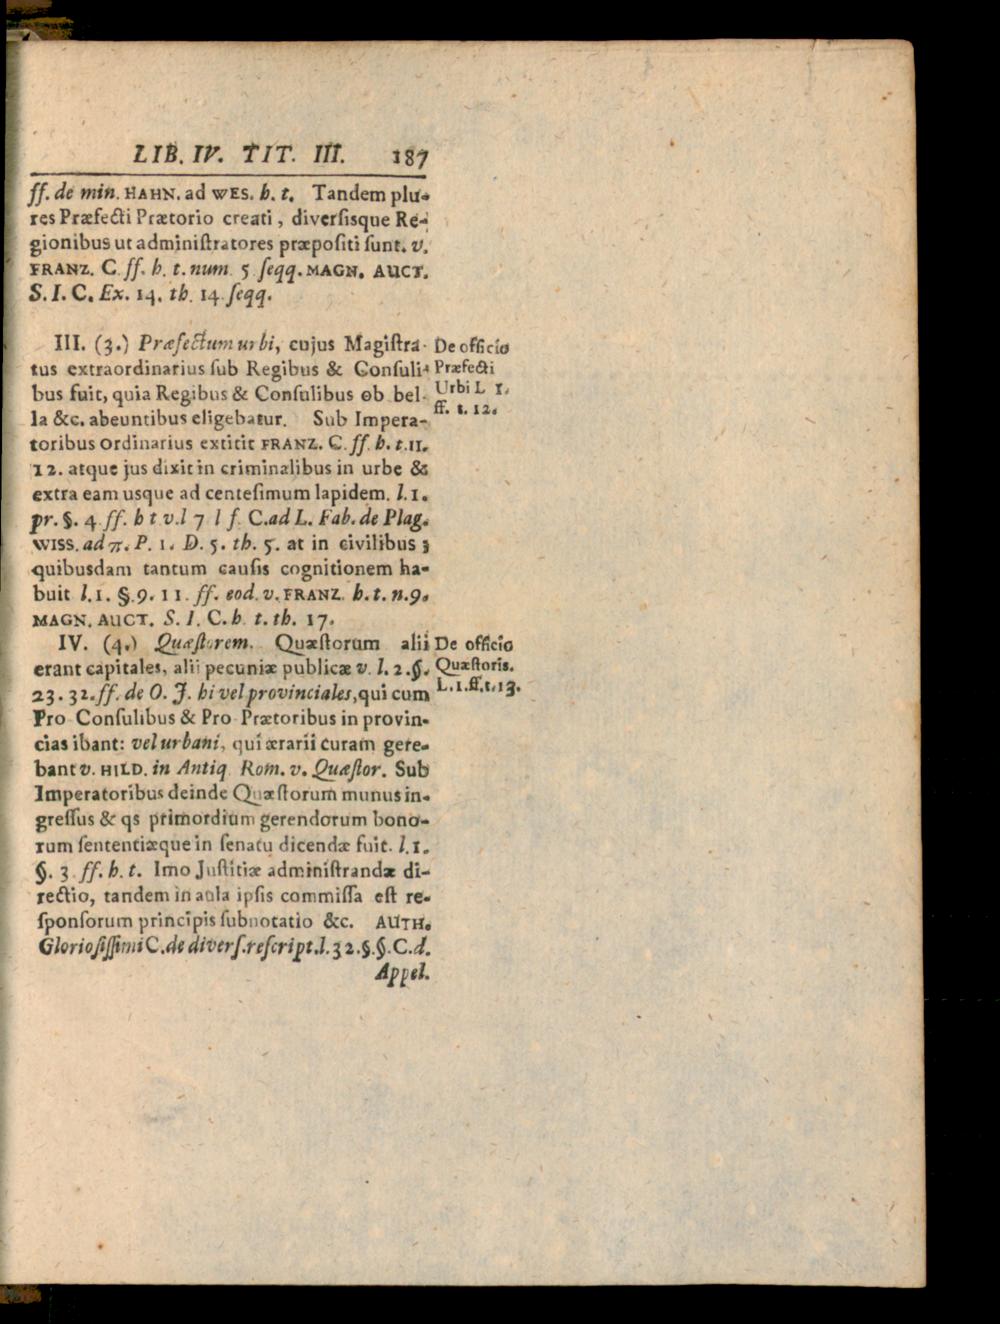 LIB. IV. TIT. III. 187
ff. de min. HAHN. ad WES. h. t. Tandem plu-
res Præfecti Prætorio creati, diversisque Re-
gionibus ut administratores præpositi sunt. v.
FRANZ. C. ff. h. t. num 5 seqq. MAGN. AUCT.
S. I. C. Ex. 14. th. 14 seqq.
III. (3.) Præfectum urbi, cujus Magistra-
tus extraordinarius sub Regibus & Consuli-
bus fuit, quia Regibus & Consulibus ob bel-
la &c. abeuntibus eligebatur. Sub Impera-
toribus ordinarius extitit FRANZ. C. ff. h. t. 11.
12. atque jus dixit in criminalibus in urbe &
extra eam usque ad centesimum lapidem. l. 1.
pr. §. 4 ff. h t v. l 7 l f. C. ad L. Fab. de Plag.
WISS. ad π. P. 1. D. 5. th. 5. at in civilibus
quibusdam tantum causis cognitionem ha-
buit l. 1. §. 9. 11. ff. eod. v. FRANZ. h. t. n. 9.
MAGN. AUCT. S. I. C. h t. th. 17.
De officio
Præfecti
Urbi L 1.
ff. t. 12.
IV. (4.) Quæstorem. Quæstorum alii
erant capitales, alii pecuniæ publicæ v. l. 2. §.
23. 32. ff. de O. J. hi vel provinciales, qui cum
Pro Consulibus & Pro Prætoribus in provin-
cias ibant: vel urbani, qui ærarii curam gere-
bant v. HILD. in Antiq. Rom. v. Quæstor. Sub
Imperatoribus deinde Quæstorum munus in-
gressus & qs primordium gerendorum bono-
rum sententiæque in senatu dicendæ fuit. l. 1.
§. 3 ff. h. t. Imo Justitiæ administrandæ di-
rectio, tandem in aula ipsis commissa est re-
sponsorum principis subnotatio &c. AUTH.
Gloriosissimi C. de divers. rescript. l. 32. §. §. C. d.
Appel.
De officio
Quæstoris.
L. 1. ff. t. 13.